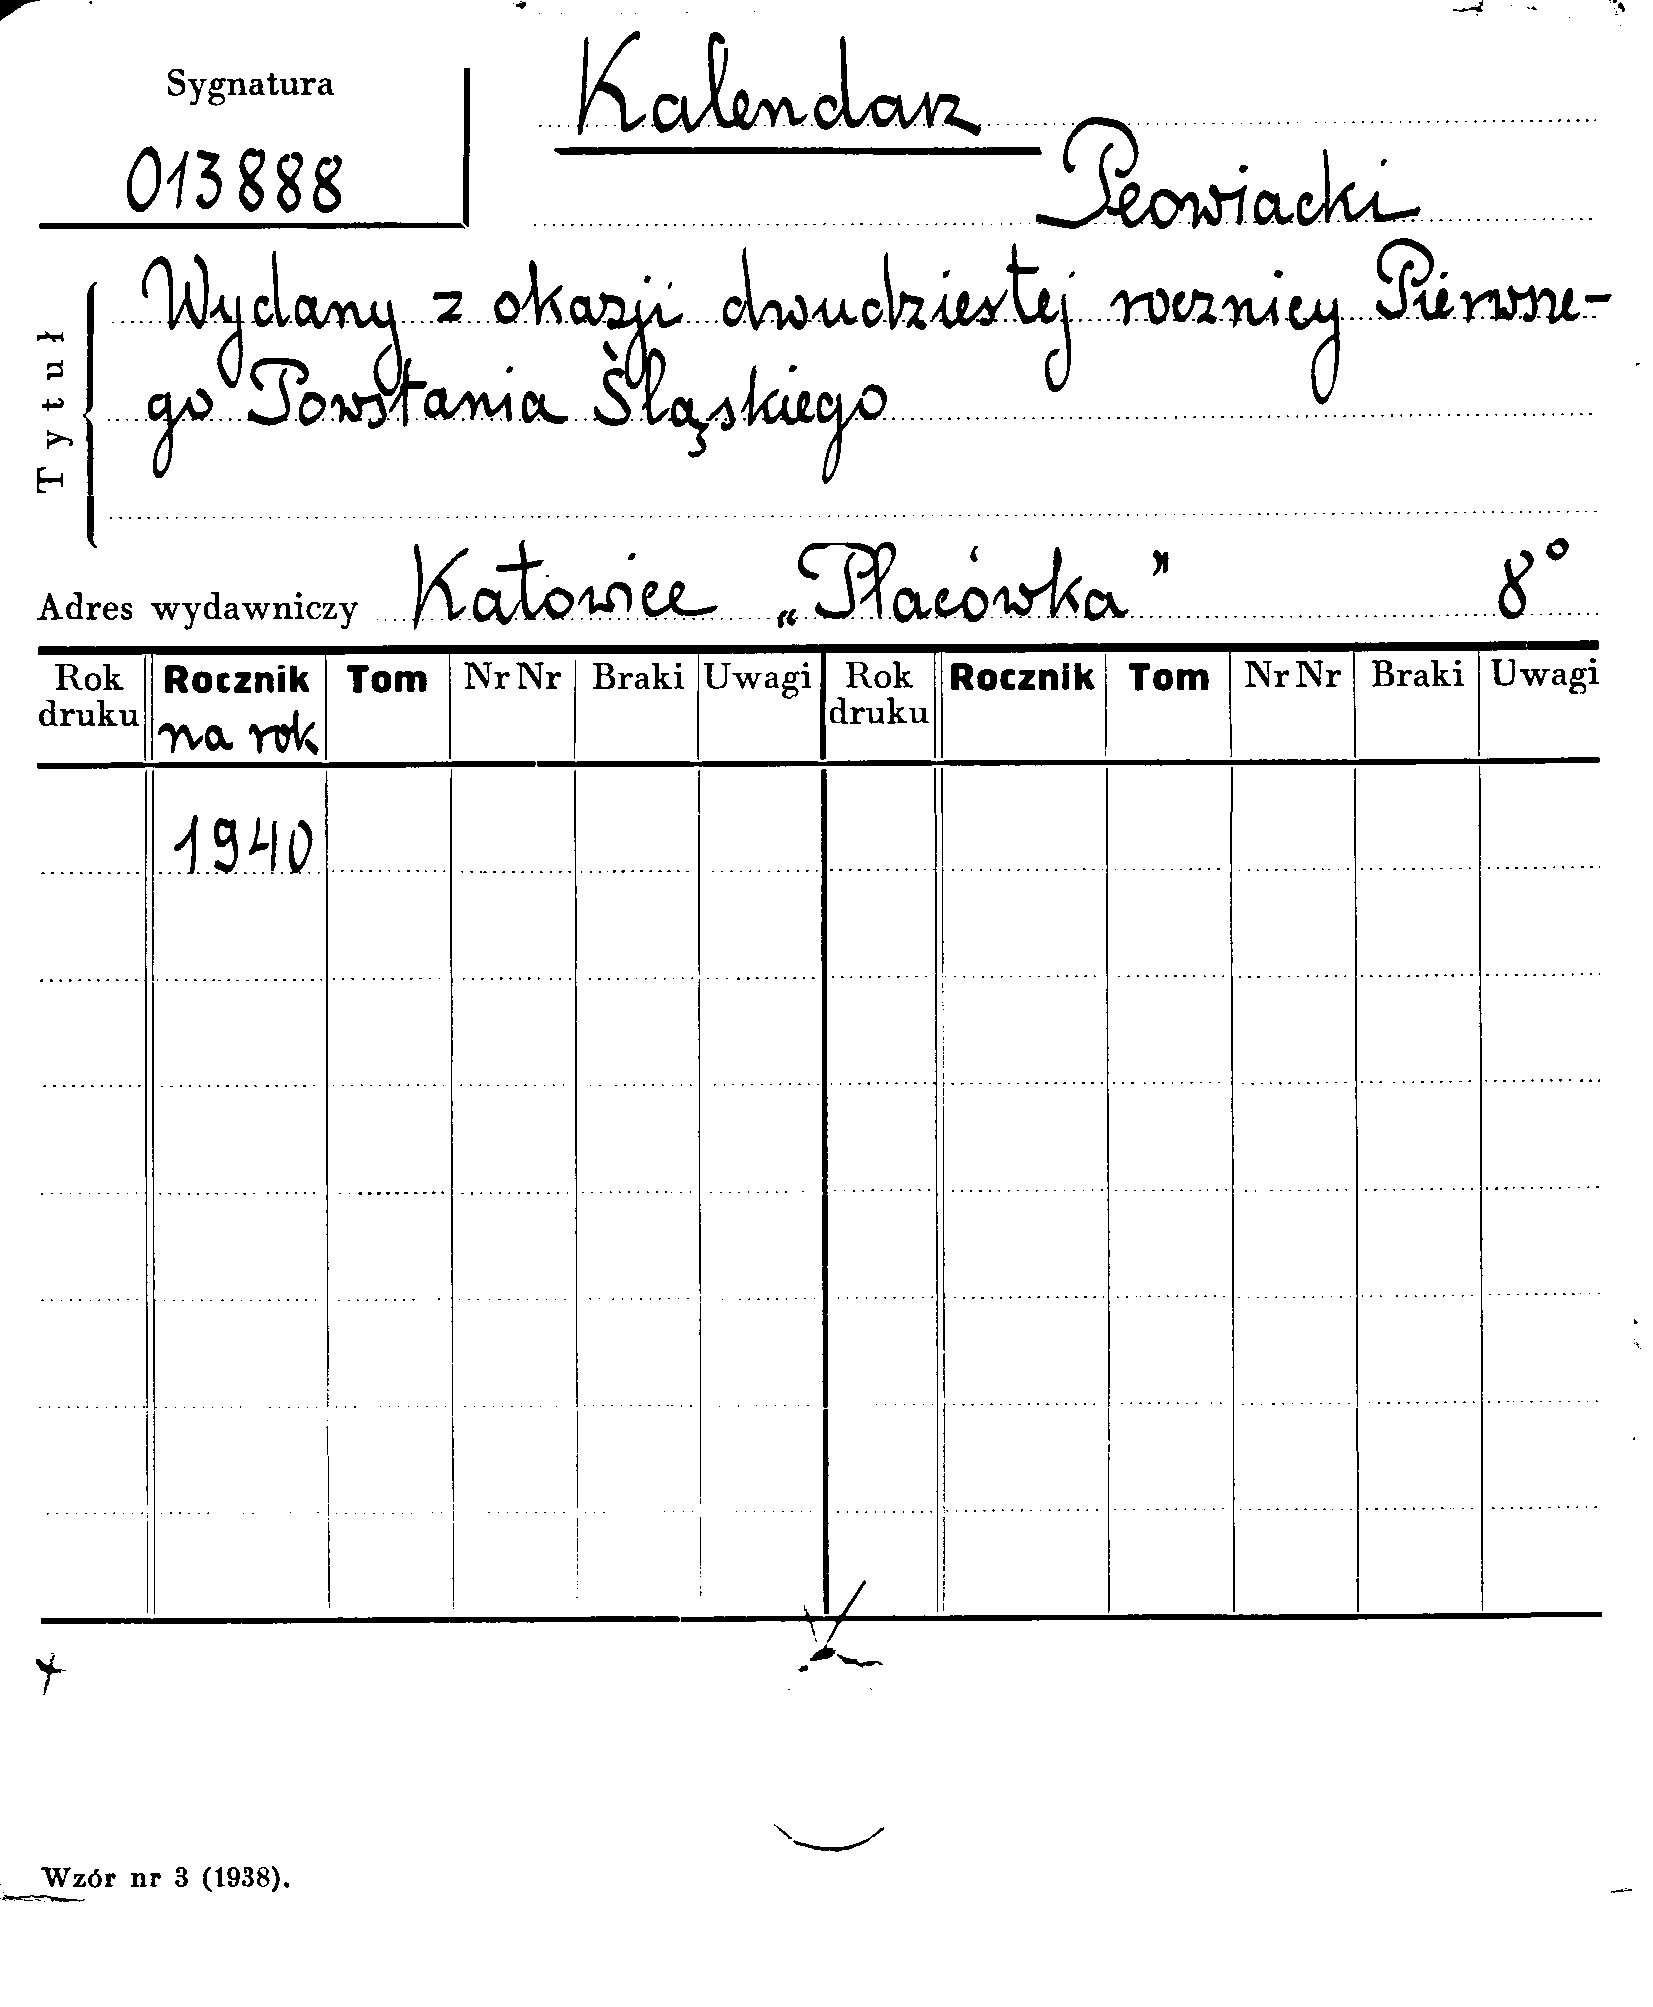 Sygnatura
013888
Kalendarz
Peowiacki
Tytuł
Wydany z okazji dwudziestej rocznicy Pierwsze-
go Powstania Śląskiego
Adres wydawniczy Katowice „Płacówka” 8°
Rok druku Rocznik na rok Tom Nr Nr Braki Uwagi Rok druku Rocznik Tom Nr Nr Braki Uwagi
1940
Wzór nr 3 (1938).